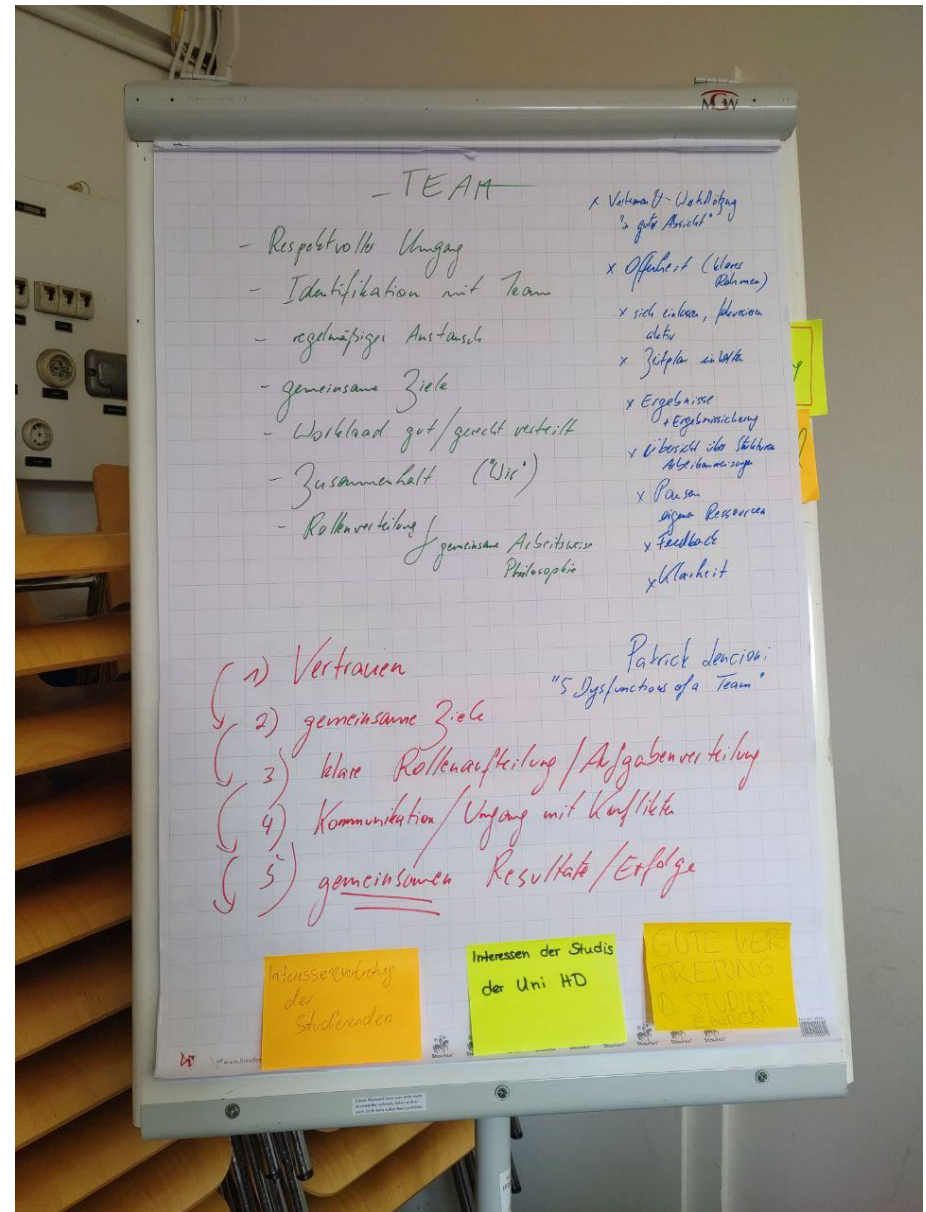 MGW
TEAM
- Respektvoller Umgang
- Identifikation mit Team
- regelmäßiger Austausch
- gemeinsame Ziele
- Workload gut/gerecht verteilt
- Zusammenhalt ("Wir")
- Rollenverteilung
gemeinsame Arbeitsweise
Philosophie
x
gute Absicht"
x Offenheit (klarer
Rahmen)
x sich einlassen,
aktiv
x Zeitplan einhalten
x Ergebnisse
+ Ergebnissicherung
x Übersicht über Strukturen
x Pausen
eigene Ressourcen
x Feedback
x Klarheit
Patrick Lencioni
"5 Dysfunctions of a Team"
1) Vertrauen
2) gemeinsame Ziele
3) klare Rollenaufteilung/Aufgabenverteilung
4) Kommunikation/Umgang mit Konflikten
5) gemeinsamen Resultate/Erfolge
Interessenvertretung
der
Studierenden
Interessen der Studis
der Uni HD
GUTE VER-
TRETUNG
D. STUDIER-
ENDEN